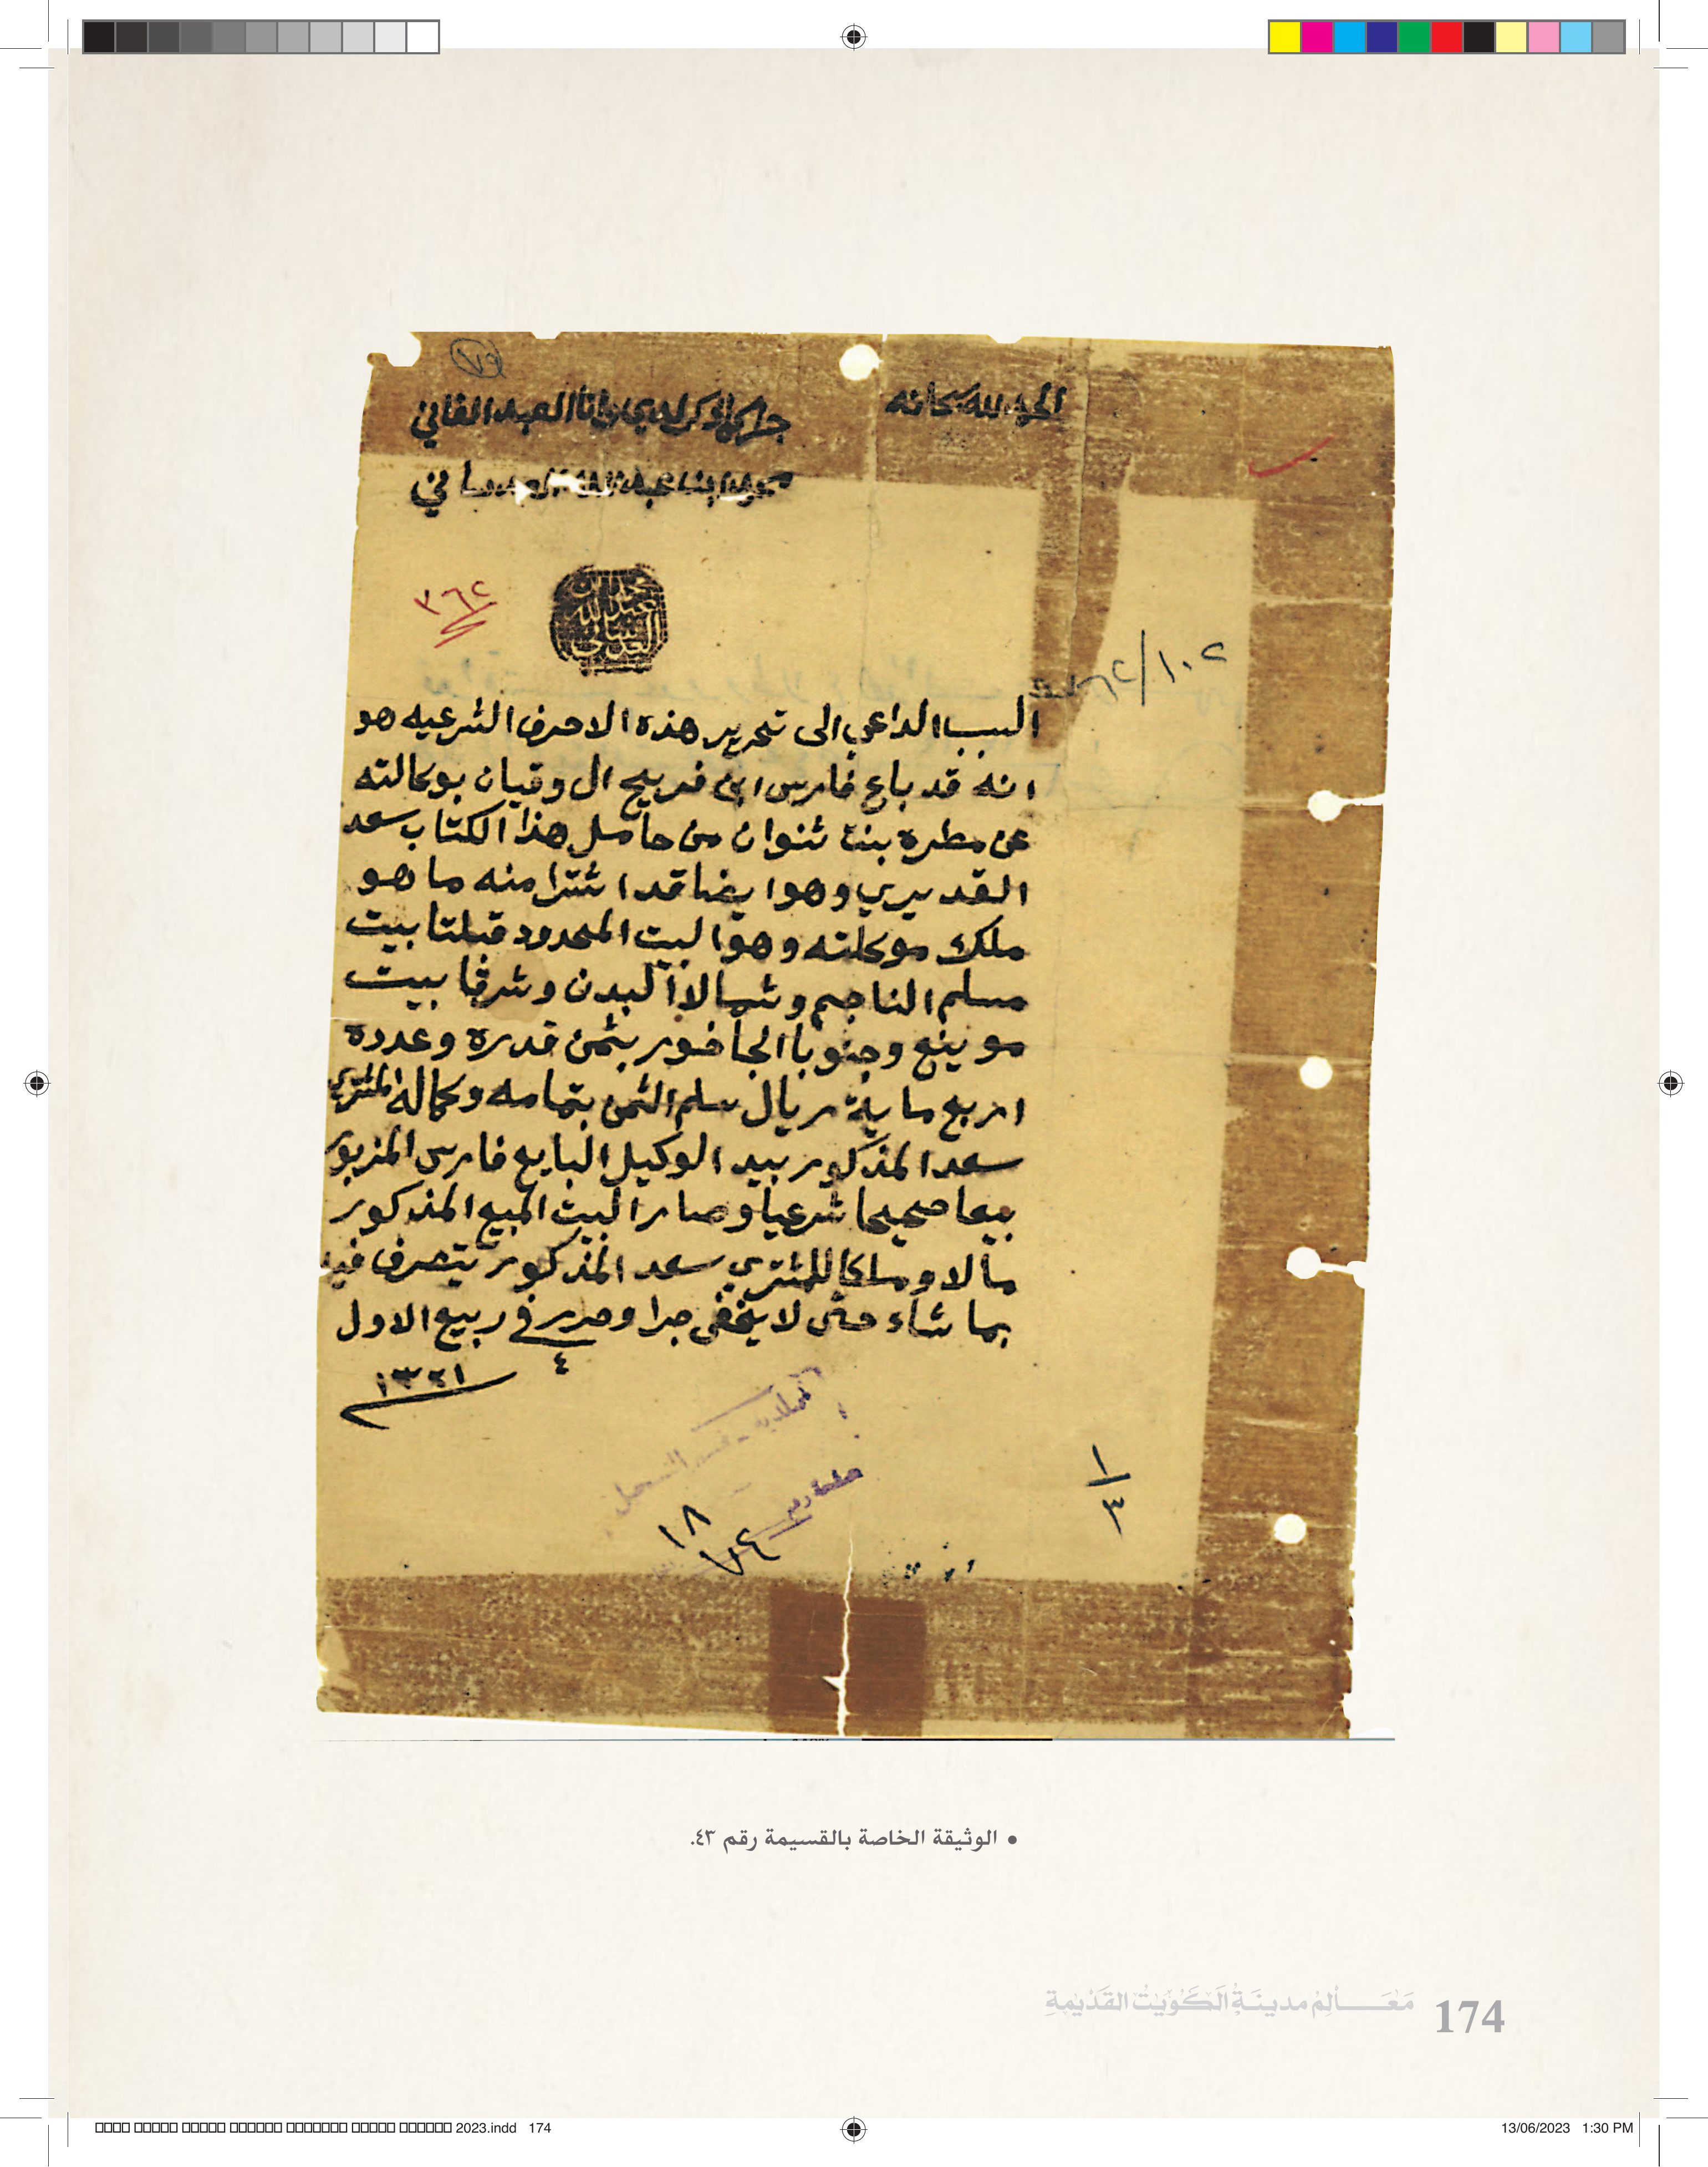 الحمد لله سبحانه
جرى ما ذكر لدي وانا العبد الفاني
محمد ابن عبدالله العدساني
محمد بن عبدالله العدساني
٣٦٢
١٠٢
السبب الداعي الى تحرير هذه الاحرف الشرعيه هو
انه قد باع فارس ابن فريج ال وقيان بوكالته
عن مطره بنت شنوان من حامل هذا الكتاب سعد
القديري وهو ايضا قد اشترا منه ما هو
ملك موكلته وهو البيت المحدود قبلتا بيت
مسلم الناجم وشمالا البدن وشرقا بيت
موينع وجنوبا الجاخور بثمن قدره وعدده
اربع ماية ريال سلم الثمن بتمامه وكماله المشتري
سعد المذكور بيد الوكيل البايع فارس المزبور
بيعا صحيحا شرعيا وصار البيت المبيع المذكور
مالا وملكا للمشتري سعد المذكور يتصرف فيه
بما شاء حتى لا يخفى جرا وحرر في ربيع الاول
٤
١٣٢١
البلدية - قسم التسجيل
١
٣
١٨
٧٤
• الوثيقة الخاصة بالقسيمة رقم ٤٣.
مَعَـــالِمُ مدينَةِ الكُوَيْتِ القَدِيمَةِ 174
2023.indd 174
13/06/2023 1:30 PM